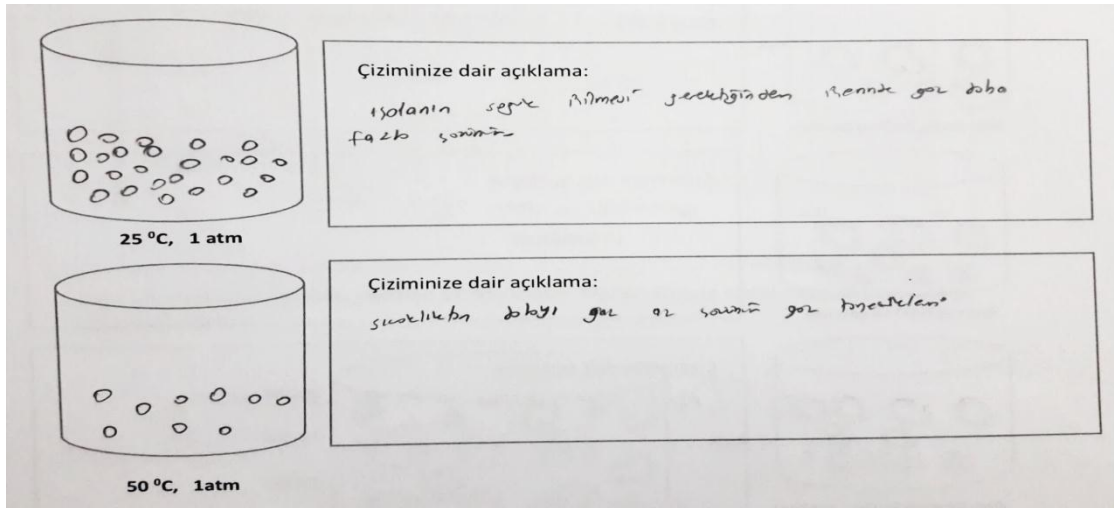 Çiziminize dair açıklama:
içilmesi gerektiğinden gaz daha
fazla çözünür
25 ⁰C, 1 atm
Çiziminize dair açıklama:
sıcaklıktan dolayı gaz az çözünür gaz tanecikleri
50 ⁰C, 1atm